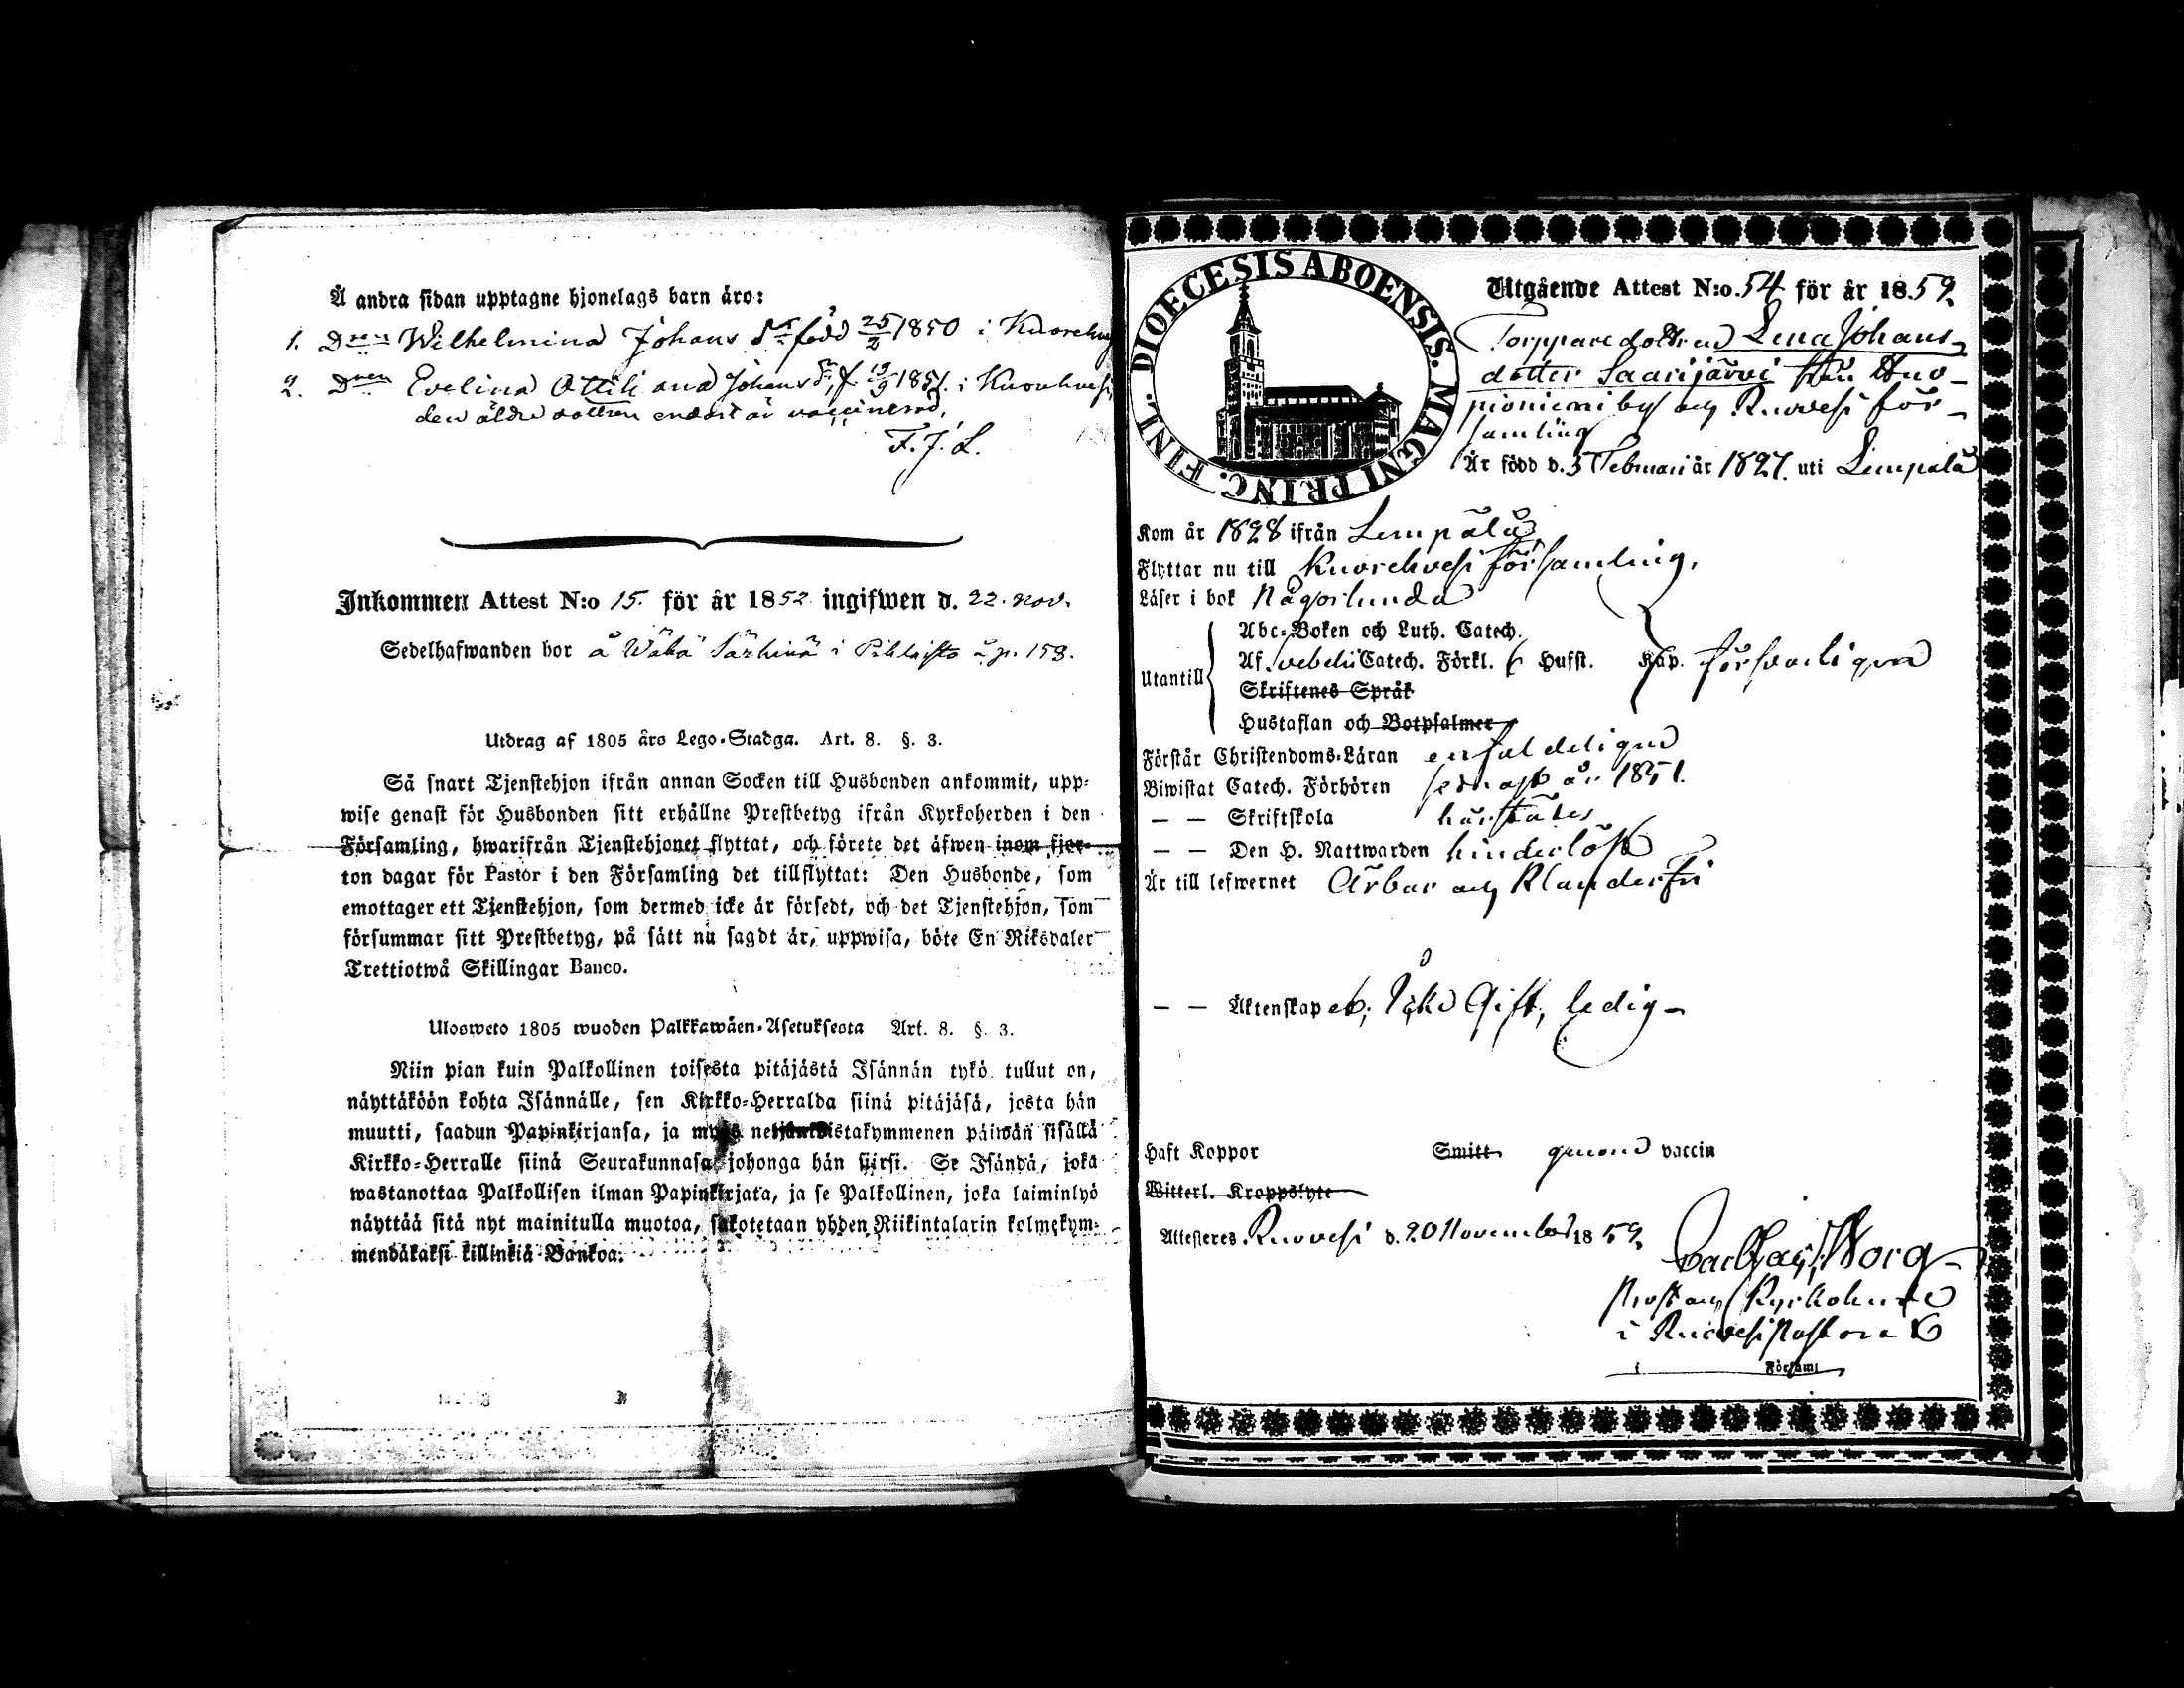 Å andra sidan upptagne hjonelags barn äro:
1. Dren Wilhelmina Johans dr född 25/2 1850 i Kuorehve
2. Dren Evelina Ottiliana Johans dr, f. 19/9 1851. i Kuorehvesi,
den äldre dottren endast är vaccinerad,
F. J. L.
Inkommen Attest N:o 15. för år 1852 ingifwen d. 22. nov.
Sedelhafwanden bor å Wähä Särkinä i Pihlaisto u. p. 158.
Utdrag af 1805 års Lego-Stadga. Art. 8. §. 3.
Så snart Tjenstehjon ifrån annan Socken till Husbonden ankommit, upp-
wise genast för Husbonden sitt erhållne Prestbetyg ifrån Kyrkoherden i den
Församling, hwarifrån Tjenstehjonet flyttat, och förete det äfwen inom fjor-
ton dagar för Pastor i den Församling det tillflyttat: Den Husbonde, som
emottager ett Tjenstehjon, som dermed icke är försedt, och det Tjenstehjon, som
försummar sitt Prestbetyg, på sätt nu sagdt är, uppwisa, böte En Riksdaler
Trettiotwå Skillingar Banco.
Ulosweto 1805 wuoden Palkkawäen-Asetuksesta Art. 8. §. 3.
Niin pian kuin Palkollinen toisesta pitäjästä Isännän tykö tullut on,
näyttäköön kohta Isännälle, sen Kirkko-Herralda siinä pitäjäsä, josta hän
muutti, saadun Papinkirjansa, ja myös neljäntoistakymmenen päiwän sisällä
Kirkko-Herralle siinä Seurakunnasa johonga hän siirsi. Se Isändä, joka
wastanottaa Palkollisen ilman Papinkirjata, ja se Palkollinen, joka laiminlyö
näyttää sitä nyt mainitulla muotoa, sakotetaan yhden Riikintalarin kolmekym-
mendäkaksi killinkiä Bankoa.
DIOECESIS ABOENSIS. MAGNI PRINC. FINL.
Utgående Attest N:o. 54 för år 1852.
Torppare dottren Lena Johans-
dotter Saarijärvi från Kuo-
pioniemi by och Ruovesi för-
samling
Är född d. 5 Februari år 1827. uti Lempälä
Kom år 1828 ifrån Lempälä
Flyttar nu till Kuorehvesi församling,
Läser i bok någorlunda
Utantill
Abc-Boken och Luth. Catech.
Af Svebelii Catech. Förkl. Hufst. Kap. försvarligen
Skriftenes Språk
Hustaflan och Botpsalmer
Förstår Christendoms-Läran enfaldeligen
Biwistat Catech. Förhören sednast år 1851.
— — Skriftskola härstädes
— — Den H. Nattwarden hinderlöst
Är till lefwernet Ärbar och Klanderfri
— — Äktenskapet; Icke Gift, ledig -
Haft Koppor Smitt genom vaccin
Witterl. Kroppslyte
Attesteres Ruovesi d. 20 November 1852.
Prost och Kyrkoherde
i Ruovesi Pastorat
i Församl